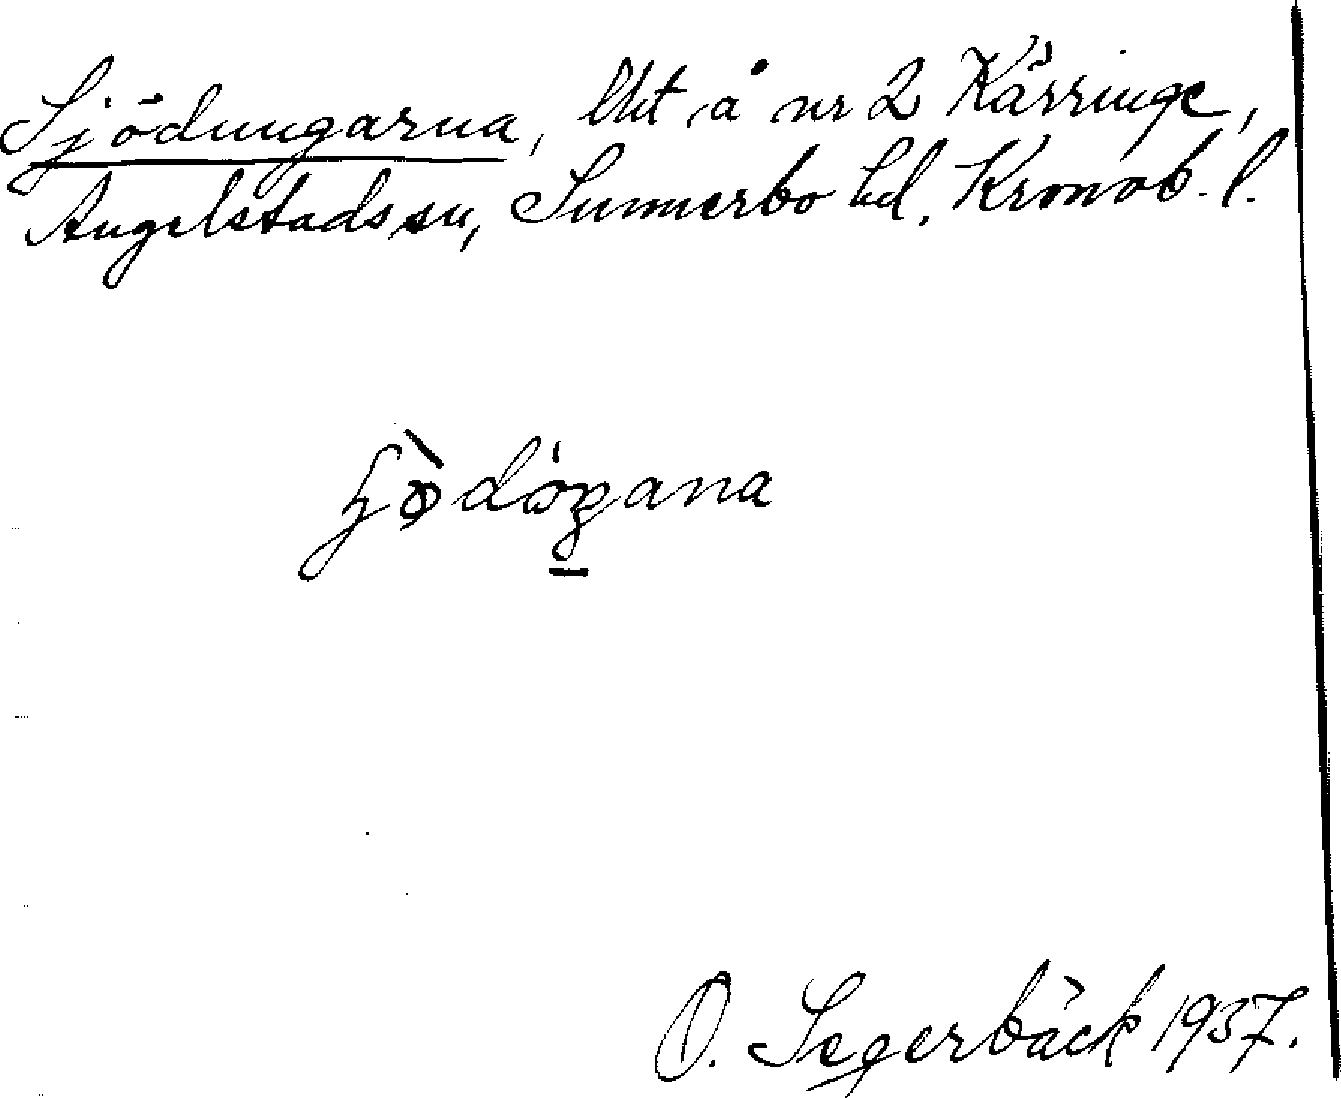 Sjödungarna, lht å nr 2 Kärringe,
Angelstads sn, Sunnerbo hd, Kronob. l.
O. Segerbäck 1937.